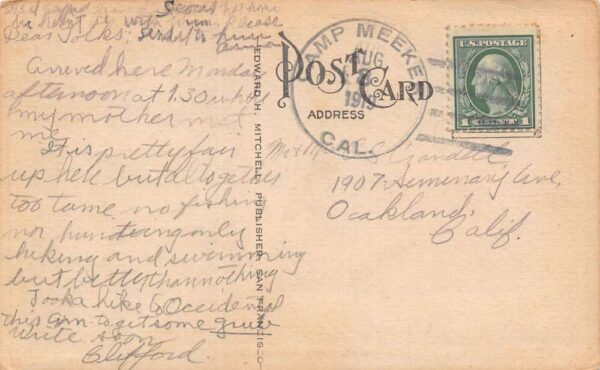 Dear Folks:
Arrived here Monday
afternoon at 1.30 when
my mother met
me.
It is pretty fair
up here but altogether
too tame no fishing
nor hunting only
hiking and swimming
but better than nothing
Took a hike to Occidental
this a.m. to get some grub
write soon
Clifford.
EDWARD H. MITCHELL PUBLISHER SAN FRANCISCO
POST CARD
ADDRESS
CAMP MEEKER
AUG
CAL.
U.S. POSTAGE
1 CENT 1
Mr & Mrs
1907 Seminary Ave,
Oakland,
Calif.